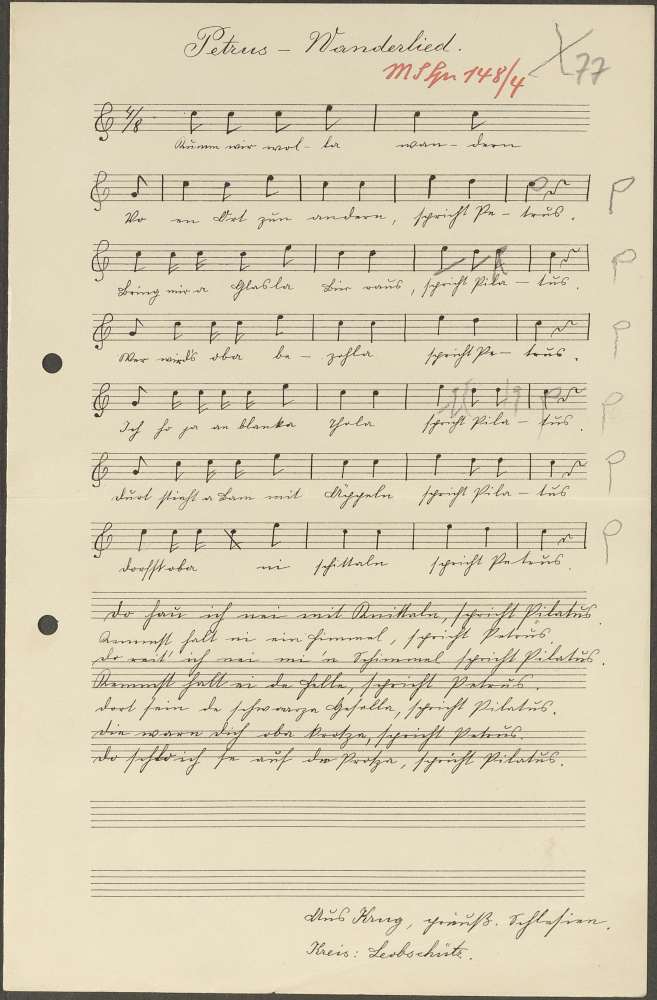 Petrus – Wanderlied.
MS Gu 148/4
77
4/8
Kumm wir wol – la wan – dern
Vo en Ort zun andern, spricht Pe – trus.
Bring mir a Glasla Bier raus, spricht Pila – tus.
Wer wirds oba be – zohla spricht Pe – trus.
Ich ho ja an blanka Thola spricht Pila – tus.
Durt stieht a Bam mit Äppeln spricht Pila – tus
dorfst oba ni schittaln spricht Petrus.
Do hau ich nei mit Knittaln, spricht Pilatus.
Kemmst halt ni ein Himmel, spricht Petrus.
Do reit' ich nei mi'n Schimmel spricht Pilatus.
Kemmst halt ei de Helle, spricht Petrus.
Dort sein de schwarze Geselle, spricht Pilatus.
die warn dich oba krotza, spricht Petrus.
Do schlo ich se auf de Protza, spricht Pilatus.
Aus preuß. Schlesien.
Kreis: Leobschütz.